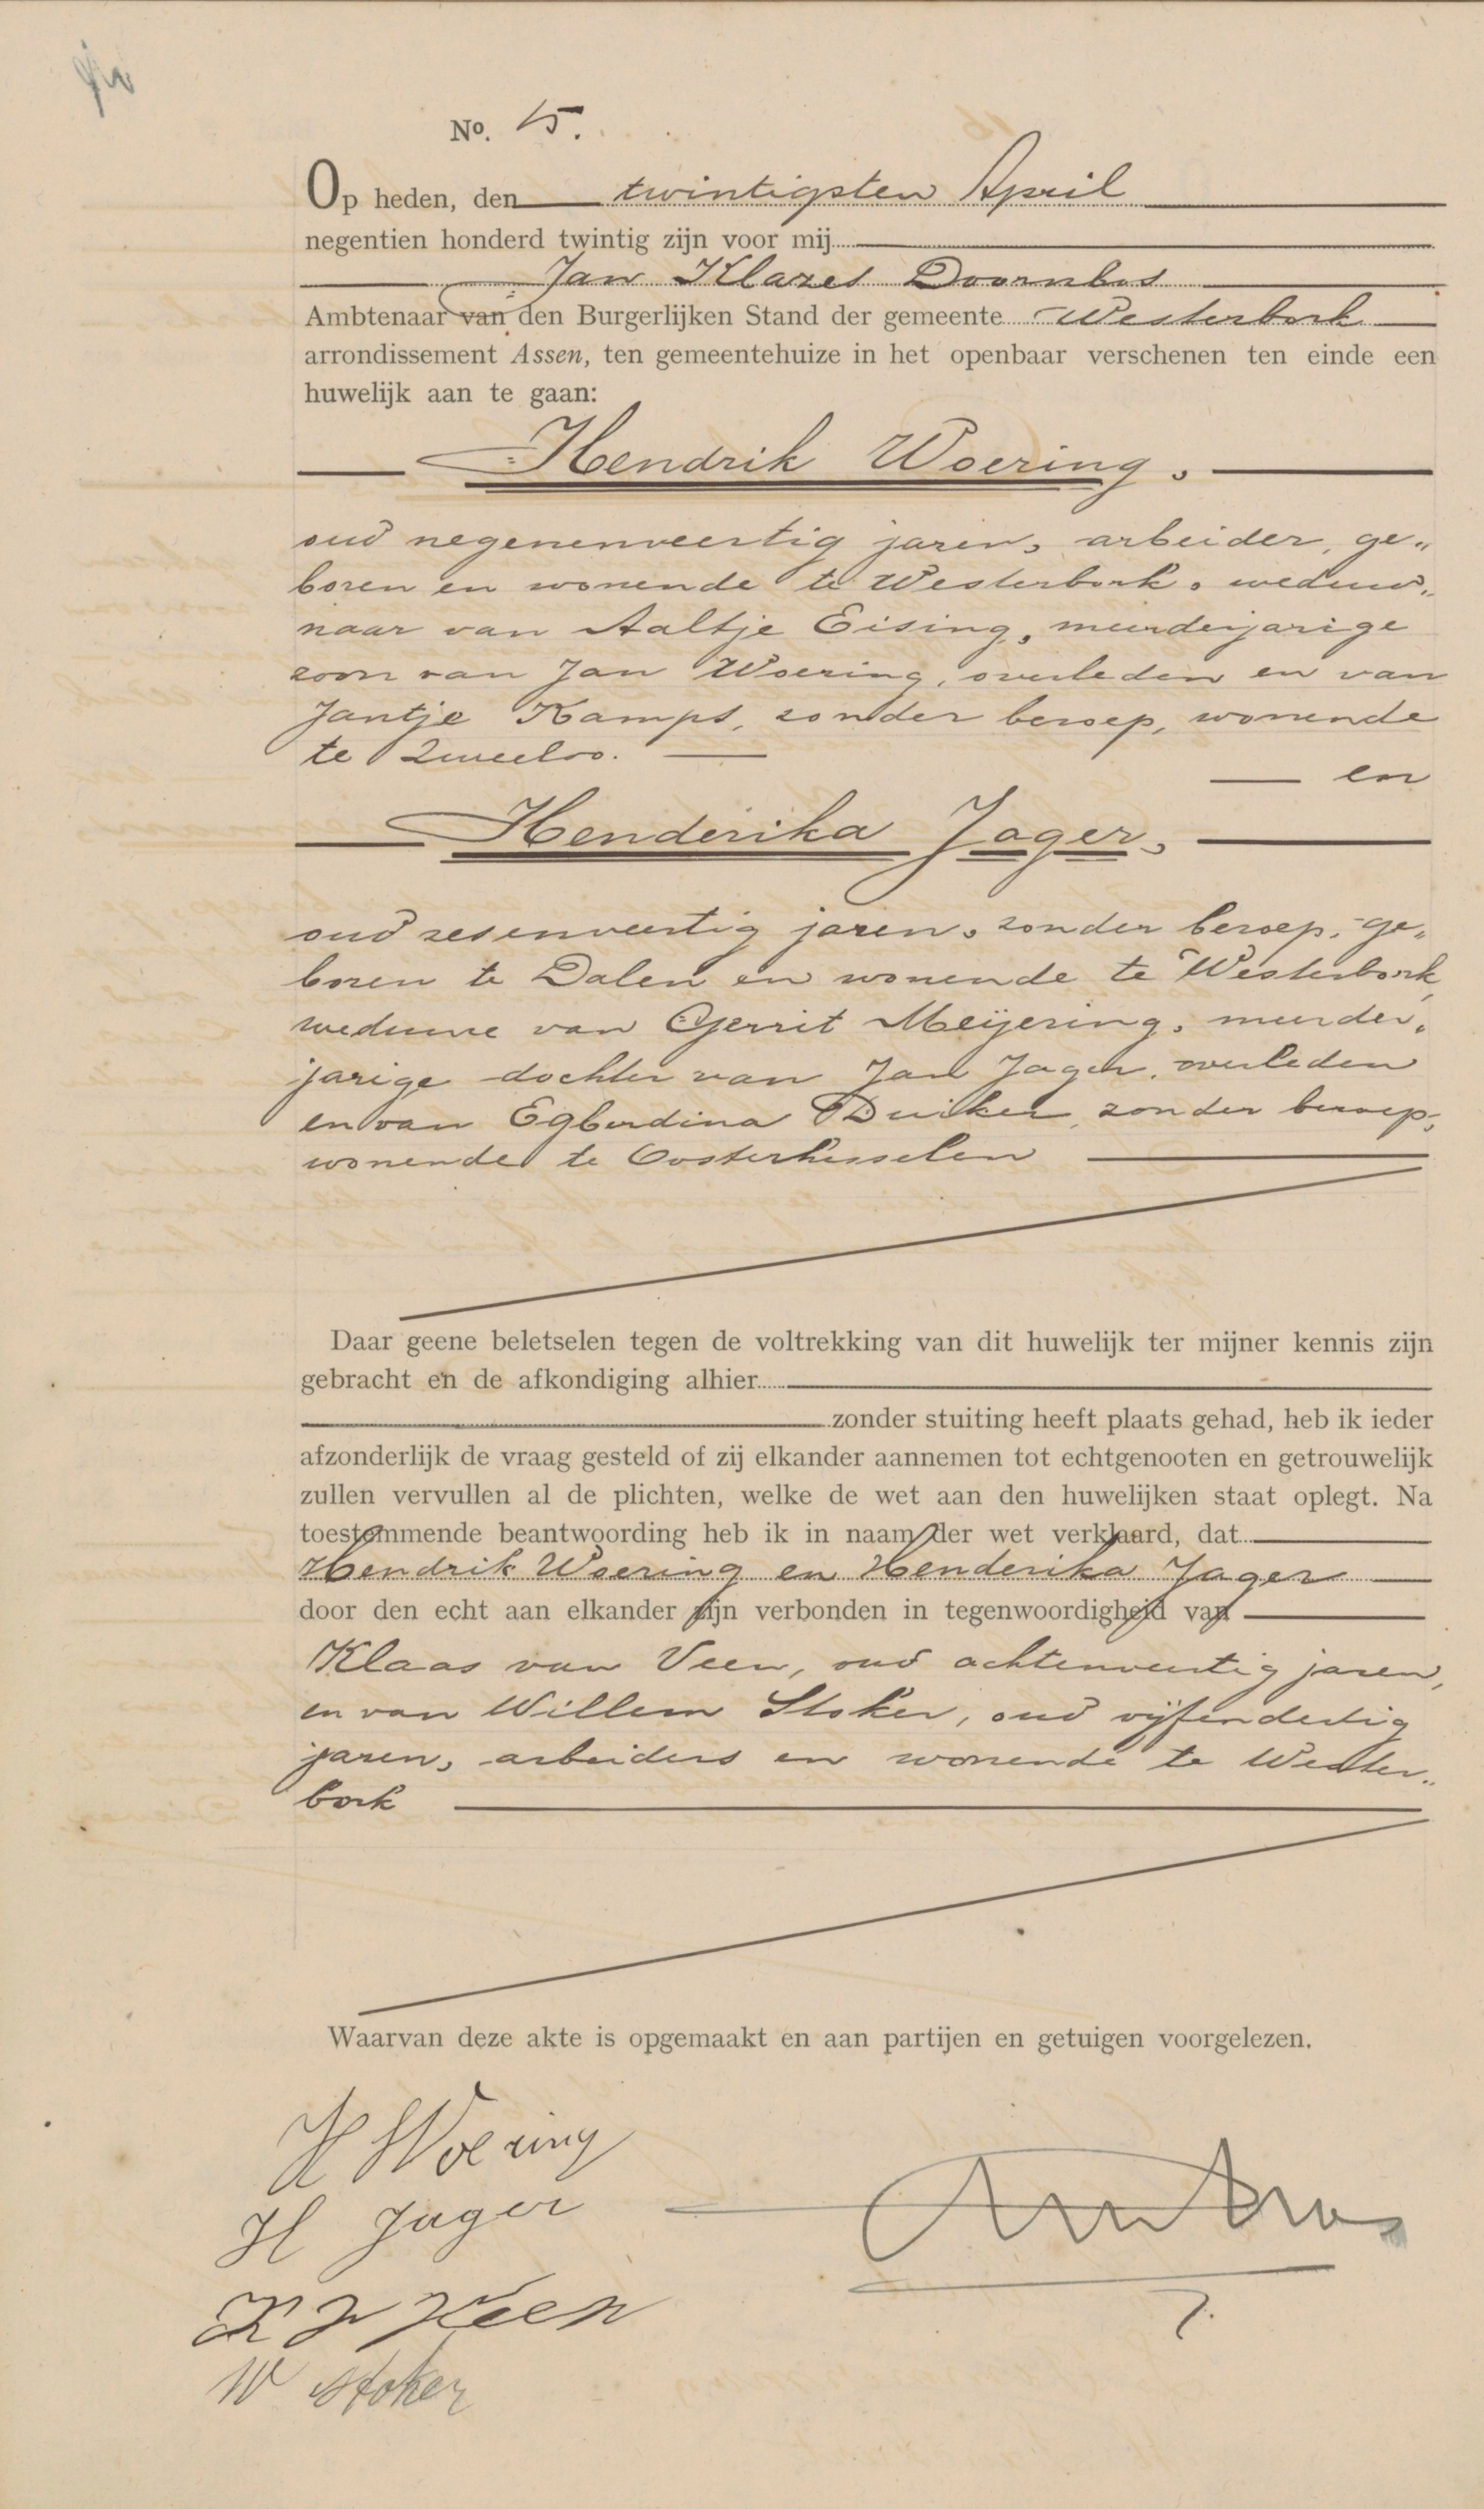 No. 15.
Op heden, den twintigsten April
negentien honderd twintig zijn voor mij
Jan Klazes Doornbos
Ambtenaar van den Burgerlijken Stand der gemeente Westerbork
arrondissement Assen, ten gemeentehuize in het openbaar verschenen ten einde een
huwelijk aan te gaan:
Hendrik Woering,
oud negenenveertig jaren, arbeider, ge„
boren en wonende te Westerbork, weduw„
naar van Aaltje Eising, meerderjarige
zoon van Jan Woering, overleden en van
Jantje Kamps, zonder beroep, wonende
te Zweeloo.
en
Henderika Jager,
oud zesenveertig jaren, zonder beroep, ge„
boren te Dalen en wonende te Westerbork,
weduwe van Gerrit Meijering, meerder„
jarige dochter van Jan Jager, overleden
en van Egberdina Duiker, zonder beroep,
wonende te Oosterhesselen
Daar geene beletselen tegen de voltrekking van dit huwelijk ter mijner kennis zijn
gebracht en de afkondiging alhier
zonder stuiting heeft plaats gehad, heb ik ieder
afzonderlijk de vraag gesteld of zij elkander aannemen tot echtgenooten en getrouwelijk
zullen vervullen al de plichten, welke de wet aan den huwelijken staat oplegt. Na
toestemmende beantwoording heb ik in naam der wet verklaard, dat
Hendrik Woering en Henderika Jager
door den echt aan elkander zijn verbonden in tegenwoordigheid van
Klaas van Veen, oud achtenveertig jaren,
en van Willem Stoker, oud vijfendertig
jaren, arbeiders en wonende te Wester„
bork
Waarvan deze akte is opgemaakt en aan partijen en getuigen voorgelezen.
H Woering
H Jager
K v Veen
W Stoker